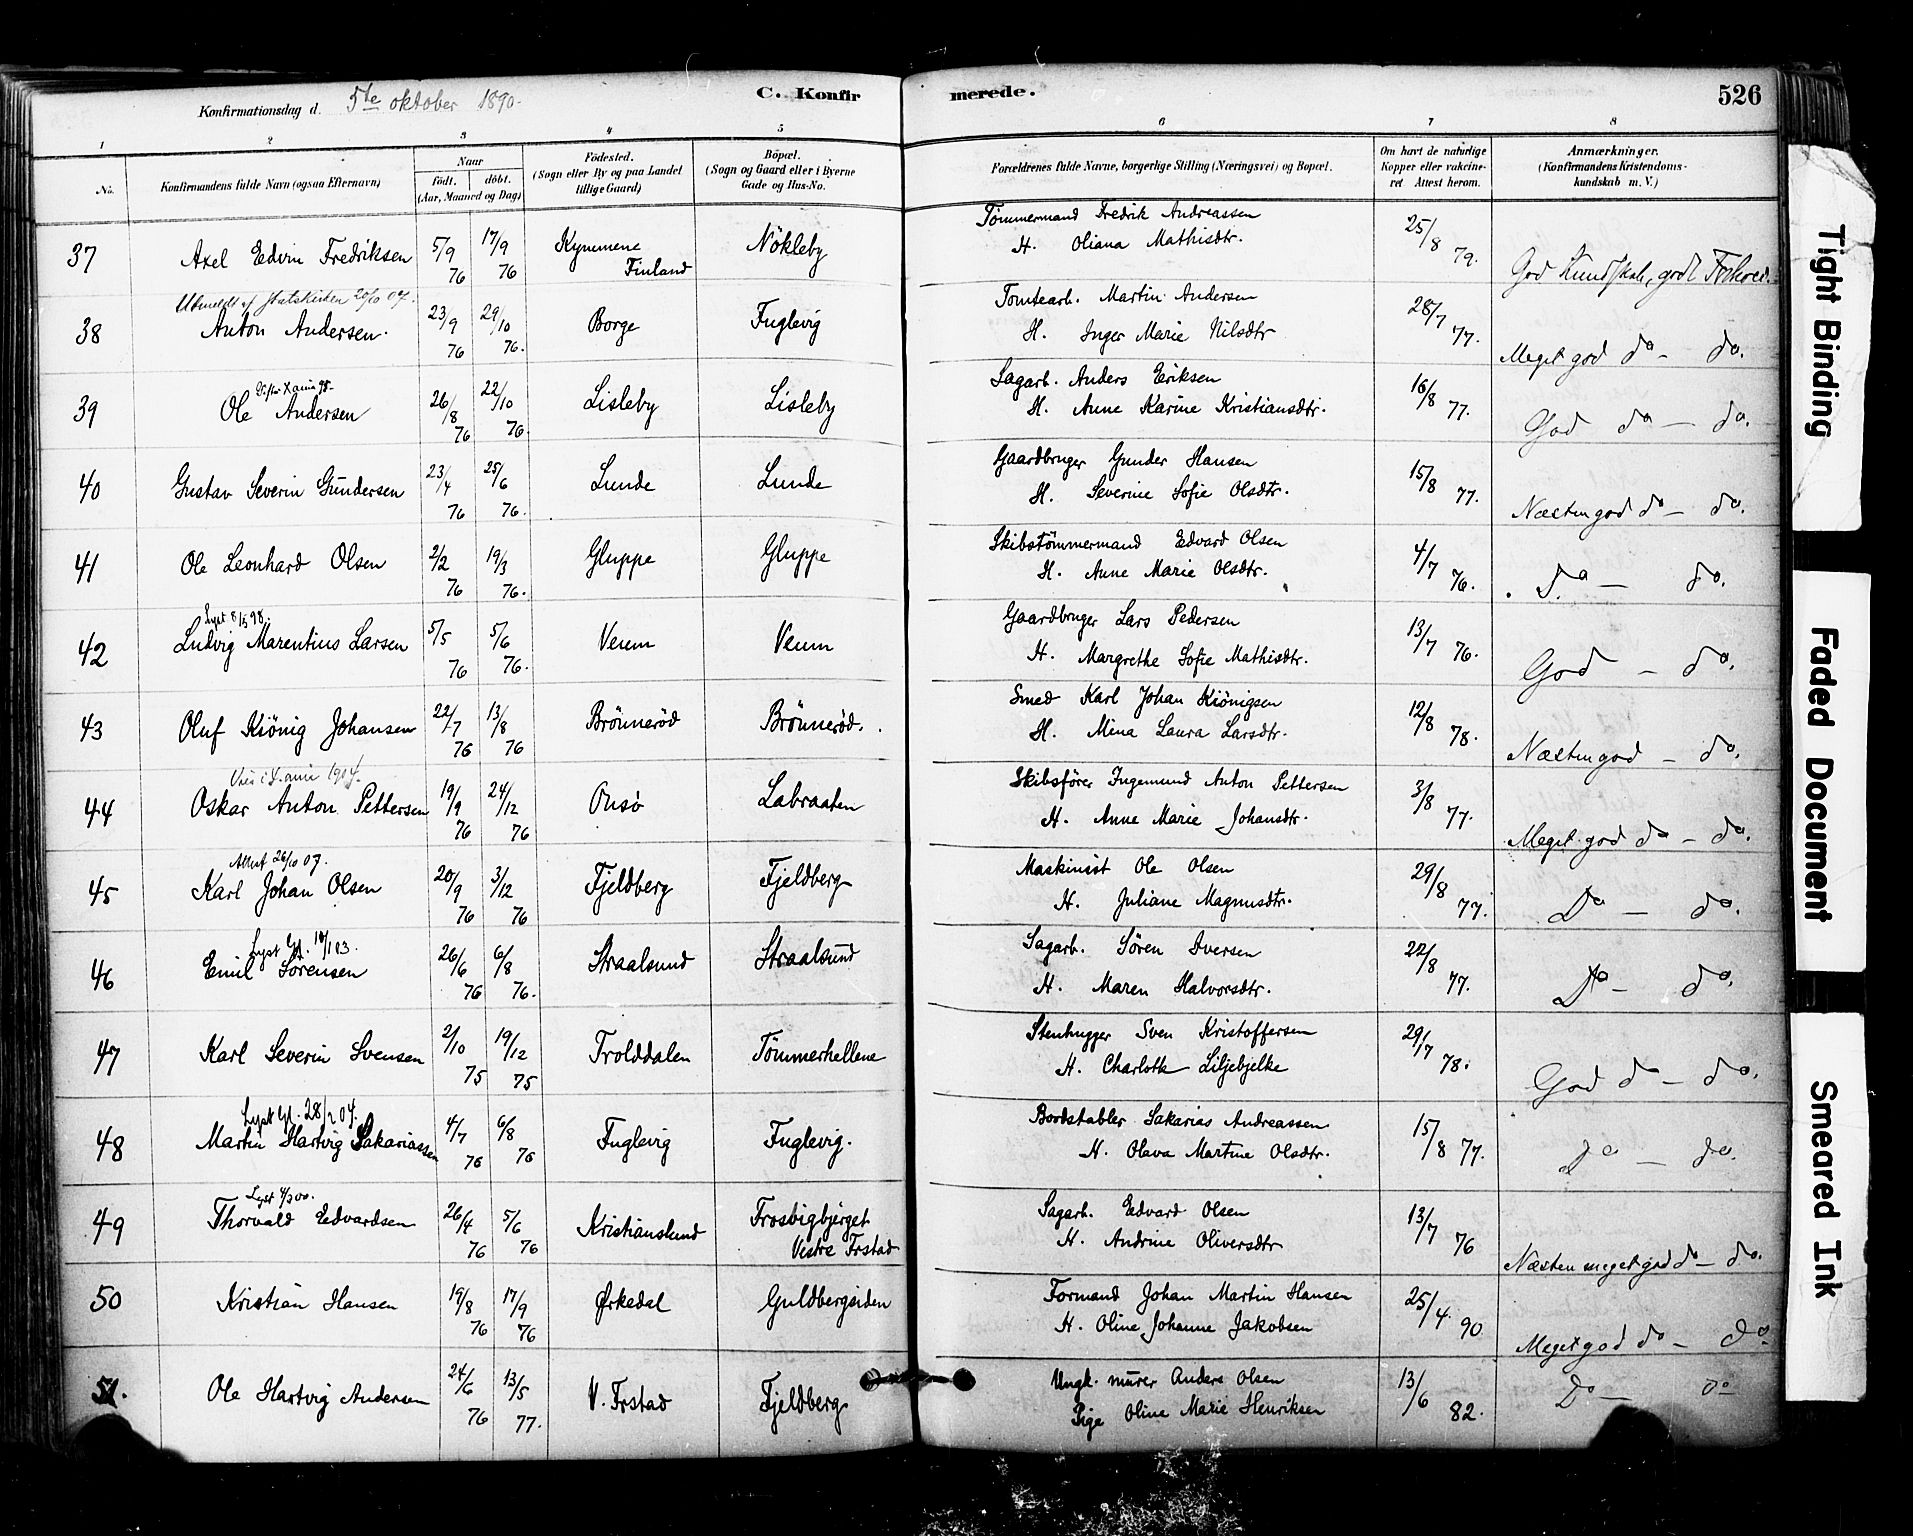 Konfirmationsdag d. 5te oktober 1890.
C. Konfirmerede.
526
1 2 3 4 5 6 7 8
No. Konfirmandens fulde Navn (ogsaa Efternavn)
Naar født. døbt. (Aar, Maaned og Dag)
Fødested. (Sogn eller By og paa Landet tillige Gaard)
Bopæl. (Sogn og Gaard eller i Byerne Gade og Hus-No.
Forældrenes fulde Navne, borgerlige Stilling (Næringsvei) og Bopæl.
Om havt de naturlige Kopper eller vakcineret Attest herom.
Anmærkninger. (Konfirmandens Kristendomskundskab m. V.)
37 Axel Edvin Fredriksen 5/9 76 17/9 76 Kymmene Finland Nökleby Tömmermand Fredrik Andreassen
H. Oliana Mathisdtr. 25/8 79. God Kundskab, godt Forhold.
Udmeldt af statskirken 20/10 07.
38 Anton Andersen. 23/9 76 29/10 76. Borge Fuglevig Tomtearb. Martin Andersen
H. Inger Marie Nilsdtr 28/7 77. Meget god do - do.
39 Ole Andersen 26/8 76 22/10 76. Lisleby Lisleby Sagarb. Anders Eriksen
H. Anne Karine Kristiansdtr. 16/8 77. God do - do.
40 Gustav Severin Gundersen 23/4 76 25/6 76. Lunde Lunde Gaardbruger Gunder Hansen
H. Severine Sofie Olsdtr. 15/8 77. Næsten god do - do.
41 Ole Leonhard Olsen 2/2 76 19/3 76. Gluppe Gluppe Skibstömmermand Edvard Olsen
H. Anne Marie Olsdtr. 4/7 76. Do - do.
Lyst 8/5 98.
42 Ludvig Marentius Larsen 5/5 76 5/6 76. Veum Veum Gaardbruger Lars Pedersen
H. Margrethe Sofie Mathisdtr. 13/7 76. God - do.
43 Oluf Kiönig Johansen 22/7 76 13/8 76 Brönneröd Brönneröd. Smed Karl Johan Kiönigsen
H. Mina Laura Larsdtr. 12/8 78. Næsten god - do.
44 Oskar Anton Pettersen 19/9 76 24/12 76 Onsö Labraaten Skibsförer Ingemund Anton Pettersen
H. Anne Marie Johansdtr. 3/8 77. Meget god do - do.
Attest 26/10 07.
45 Karl Johan Olsen 20/9 76 3/12 76 Fjeldberg Fjeldberg Maskinist Ole Olsen
H. Juliane Magnusdtr. 29/8 77. Do - do.
46 Emil Sörensen 26/6 76 6/8 76. Straalsund Straalsund Sagarb. Sören Iversen
H. Maren Halvorsdtr. 22/8 77. Do - do.
47 Karl Severin Svensen 2/10 75 19/12 75 Trolddalen Tömmerhellene Stenhugger Sven Kristoffersen
H. Charlotte Liljebjelke 29/7 78. God do - do.
Lyst Gl. 28/2 04.
48 Martin Hartvig Sakariassen 4/7 76 6/8 76 Fuglevig Fuglevig. Bordstabler Sakarias Andreassen
H. Olava Martine Olsdtr. 15/8 77. Do - do.
49 Thorvald Edvardsen 26/4 76 5/6 76 Kristianslund Trosvigbjerget Vestre Frstad Sagarb. Edvard Olsen
H. Andrine Oliversdtr 13/7 76 Næsten meget god do - do.
50 Kristian Hansen 19/8 76 17/9 76 Ørkedal Guldbergsiden Formand Johan Martin Hansen
H. Oline Johanne Jakobsen 25/4. 90 Meget god do - do
51. Ole Hartvig Andersen 24/6 76 13/5 77. V. Frstad Fjeldberg Ungk. murer Anders Olsen
Pige Oline Marie Henriksen 13/6 82. Do - do
Tight Binding
Faded Document
Smeared Ink